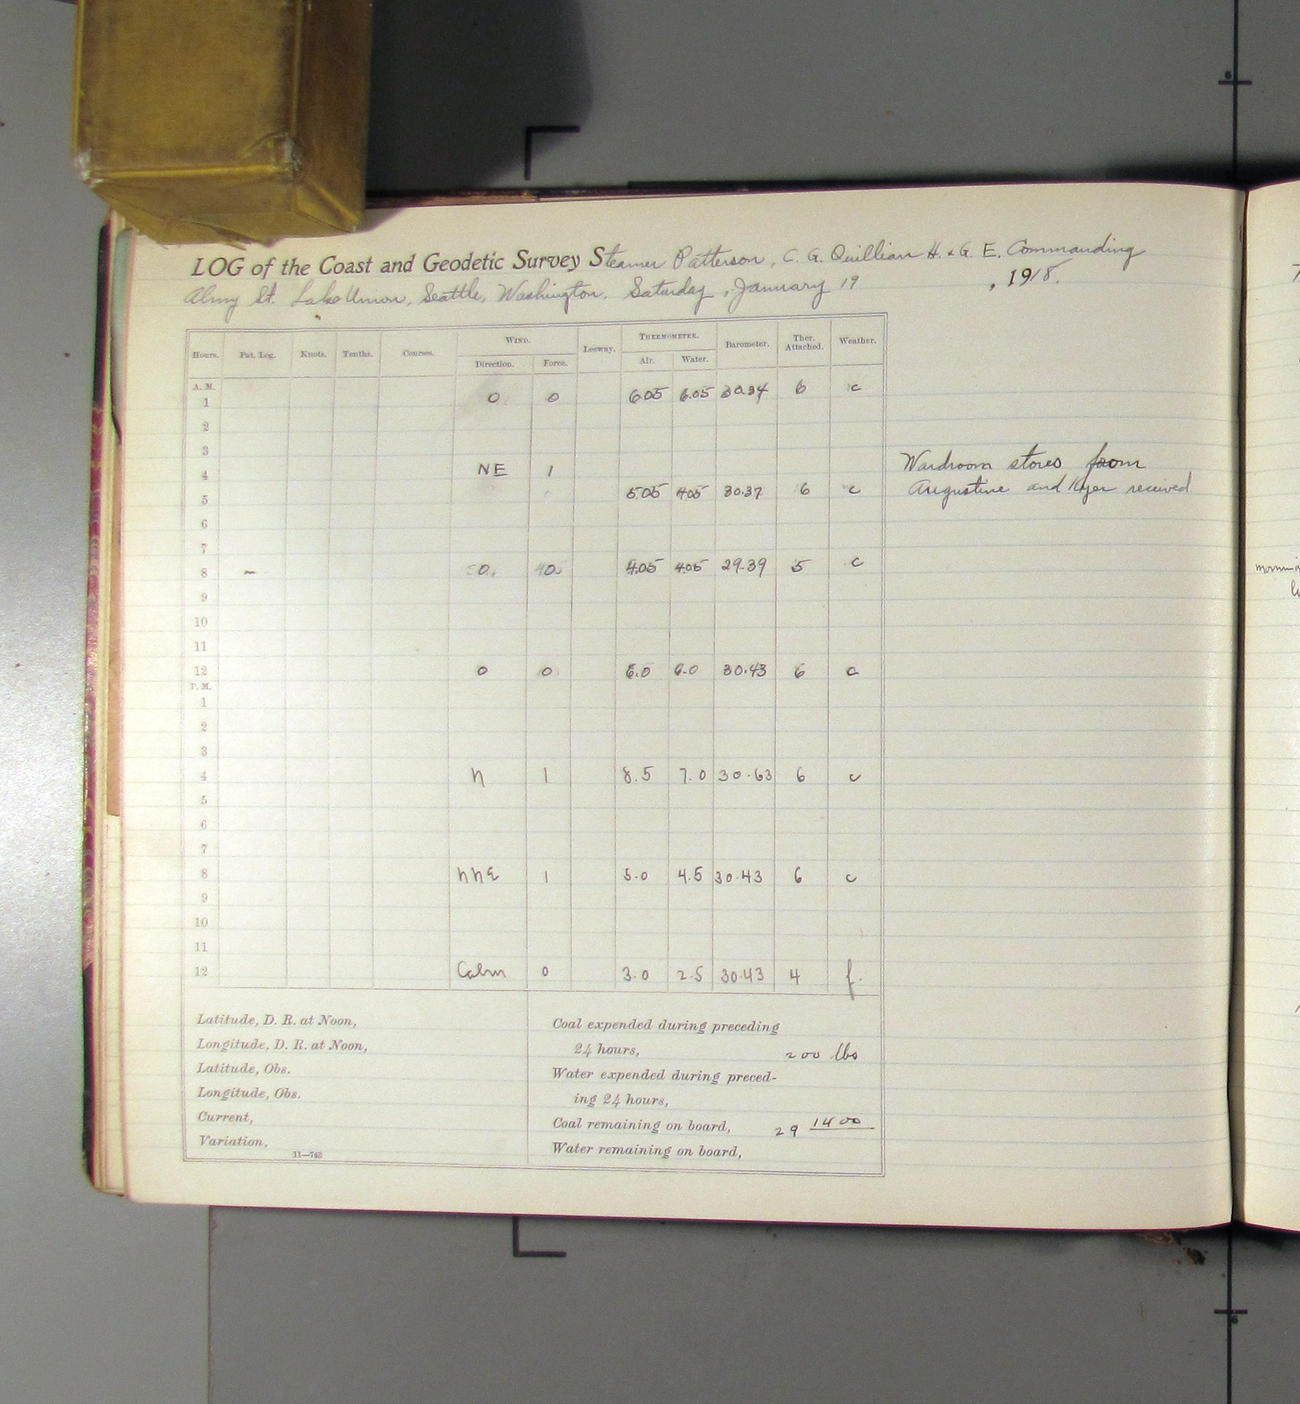 LOG of the Coast and Geodetic Survey Steamer Patterson, C. G. Quillian H. & G. E. Commanding
Almy St. Lake Union, Seattle, Washington. Saturday, January 19, 1918.
Hours. Pat. Log. Knots. Tenths. Courses. WIND. Leeway. THERMOMETER. Barometer. Ther. Attached. Weather.
Direction. Force. Air. Water.
A. M.
1 0 0 6.05 6.05 30.34 6 c
2
3
4 NE 1
5 5.05 4.05 30.37 6 c
6
7
8 - 0 0 4.05 4.05 29.39 5 c
9
10
11
12 0 0 6.0 6.0 30.43 6 c
P. M.
1
2
3
4 N 1 8.5 7.0 30.63 6 c
5
6
7
8 NNE 1 5.0 4.5 30.43 6 c
9
10
11
12 Calm 0 3.0 2.5 30.43 4 f.
Wardroom stores from
Augustine and Kyer received
Latitude, D. R. at Noon,
Longitude, D. R. at Noon,
Latitude, Obs.
Longitude, Obs.
Current,
Variation,
11—743
Coal expended during preceding
24 hours, 200 lbs
Water expended during preced-
ing 24 hours,
Coal remaining on board, 29 1400
Water remaining on board,
6
6